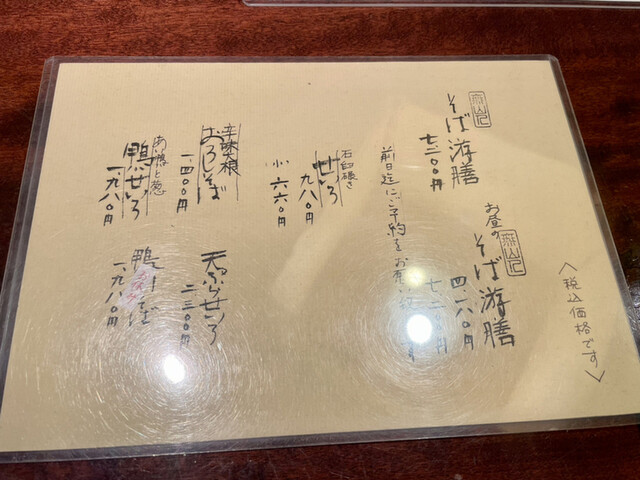 〈税込価格です〉
お昼の 無山人
そば游膳
四、一八〇円
無山人
そば游膳
七、二〇〇円
前日迄にご予約をお願い
石臼碾き
せいろ
九八〇円
小 六六〇円
辛味大根
おろしそば
一、四〇〇円
天ぷらせいろ
二、三〇〇円
あい鴨と葱
鴨せいろ
一、九八〇円
鴨
そば
一、九八〇円